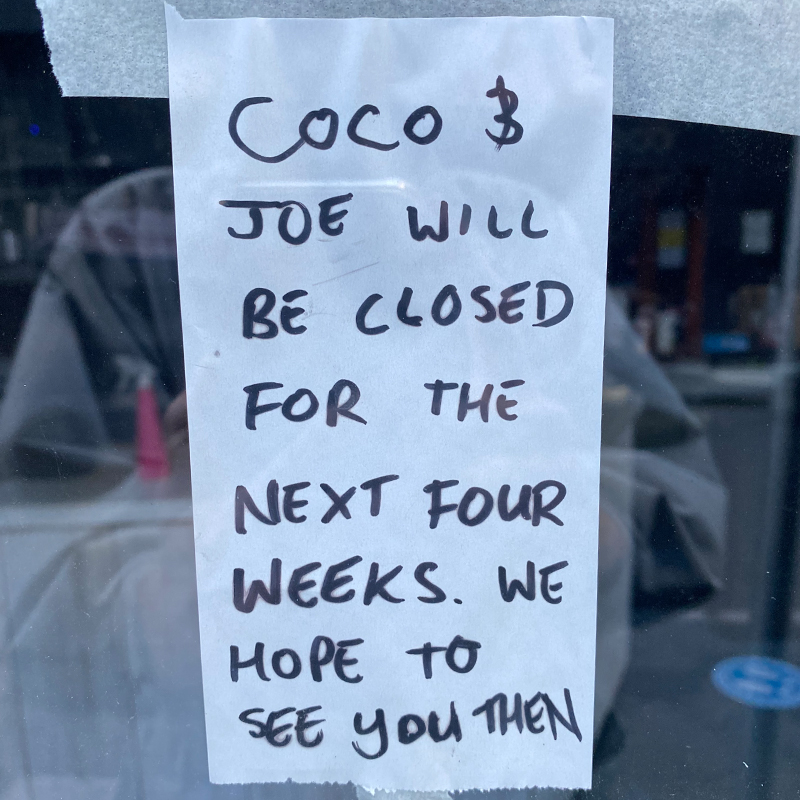 COCO &
JOE WILL
BE CLOSED
FOR THE
NEXT FOUR
WEEKS. WE
HOPE TO
SEE YOU THEN